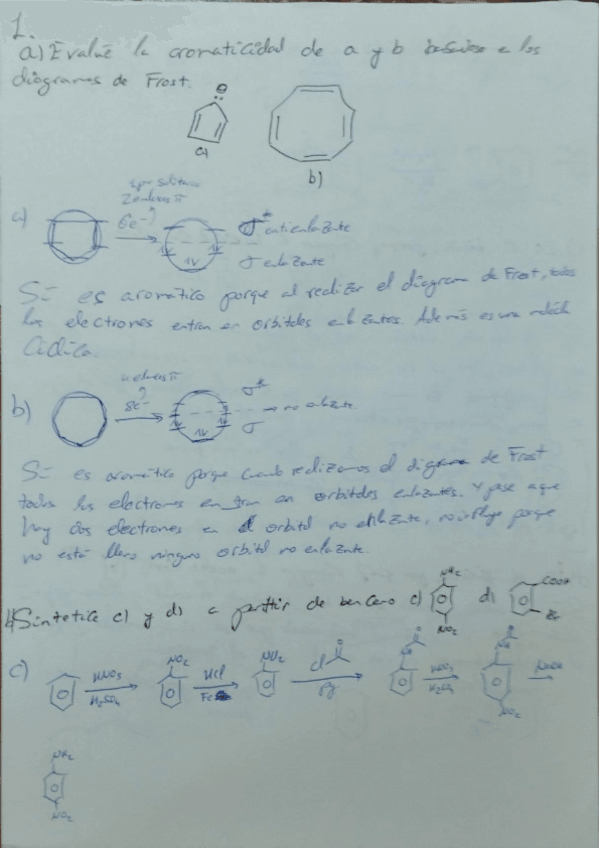 1.
a) Evalué la aromaticidad de a y b basándose en los
diagramas de Frost.
a)
b)
a)
1 par solitario
2 enlaces π
6e-
σ* antienlazante
σ enlazante
Sí es aromático porque al realizar el diagrama de Frost, todos
los electrones entran en orbitales enlazantes. Además es una molécula
Cíclica.
b)
4 enlaces π
8e-
σ*
no enlazante
σ
Sí es aromático porque cuando realizamos el diagrama de Frost
todos los electrones entran en orbitales enlazantes. Y pese a que
hay dos electrones en el orbital no enlazante, no influye porque
no está lleno ningún orbital no enlazante.
b) Sintetice c) y d) a partir de benceno c) NH2 NO2 d) COOH Br
c) HNO3 H2SO4 NO2 HCl Fe NH2 Cl py HNO3 H2SO4 NO2 NaOH
NH2
NO2